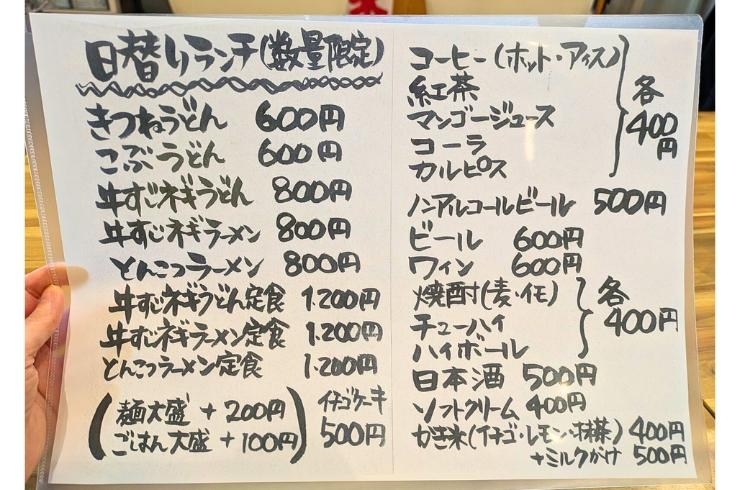 日替りランチ(数量限定)
きつねうどん 600円
こぶうどん 600円
牛すじネギうどん 800円
牛すじネギラーメン 800円
とんこつラーメン 800円
牛すじネギうどん定食 1.200円
牛すじネギラーメン定食 1.200円
とんこつラーメン定食 1.200円
(麺大盛 +200円
ごはん大盛 +100円)
イチゴケーキ
500円
コーヒー(ホット・アイス)
紅茶
マンゴージュース
コーラ
カルピス
各
400
円
ノンアルコールビール 500円
ビール 600円
ワイン 600円
焼酎(麦・イモ)
チューハイ
ハイボール
各
400円
日本酒 500円
ソフトクリーム 400円
かき氷(イチゴ・レモン・抹茶) 400円
+ミルクがけ 500円